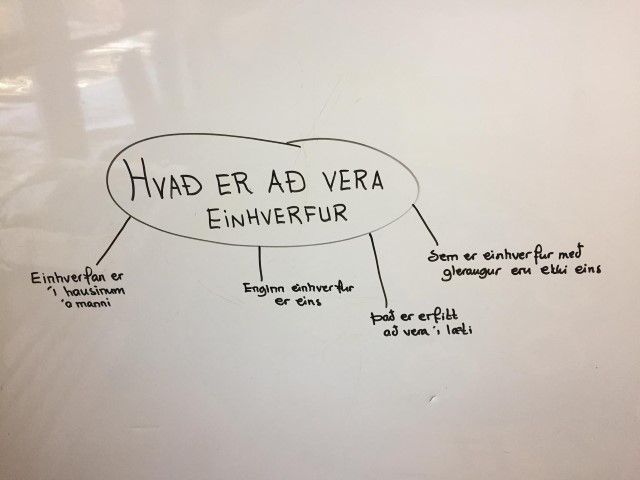 HVAÐ ER AÐ VERA
EINHVERFUR
Einhverfan er
í hausinum
á manni
Enginn einhverfur
er eins
Það er erfitt
að vera í læti
Sem er einhverfur með
gleraugur eru ekki eins